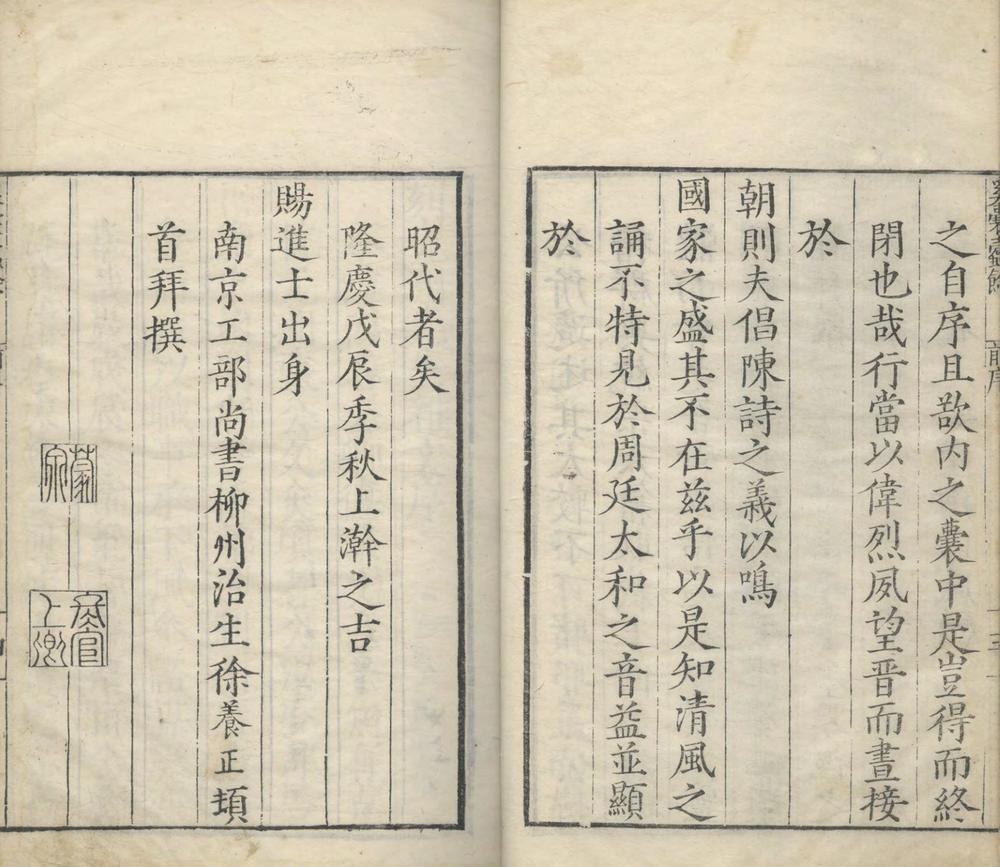 之自序且欲内之囊中是豈得而終
閉也哉行當以偉烈夙望晋而晝接
於
朝則夫倡陳詩之義以鳴
國家之盛其不在兹乎以是知清風之
誦不特見於周廷太和之音益並顯
於
昭代者矣
隆慶戊辰季秋上澣之吉
賜進士出身
南京工部尚書柳州治生徐養正頓
首拜撰